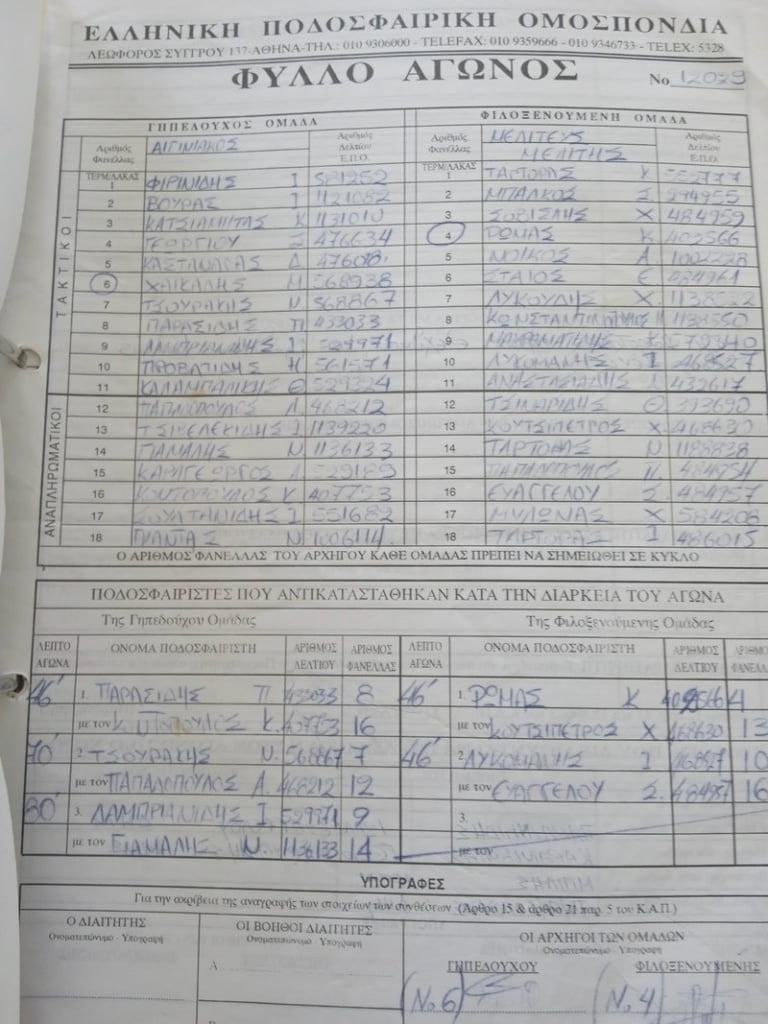 ΕΛΛΗΝΙΚΗ ΠΟΔΟΣΦΑΙΡΙΚΗ ΟΜΟΣΠΟΝΔΙΑ
ΛΕΩΦΟΡΟΣ ΣΥΓΓΡΟΥ 137-ΑΘΗΝΑ-ΤΗΛ.: 010 9306000 - TELEFAX: 010 9359666 - 010 9346733 - TELEX: 5328
ΦΥΛΛΟ ΑΓΩΝΟΣ
No 12029
ΓΗΠΕΔΟΥΧΟΣ ΟΜΑΔΑ ΦΙΛΟΞΕΝΟΥΜΕΝΗ ΟΜΑΔΑ
Αριθμός Φανέλλας ΑΙΓΙΝΙΑΚΟΣ Αριθμός Δελτίου Ε.Π.Ο. Αριθμός Φανέλλας ΜΕΛΙΤΕΥΣ ΜΕΛΙΤΗΣ Αριθμός Δελτίου Ε.Π.Ο.
ΤΑΚΤΙΚΟΙ
ΤΕΡΜ/ΛΑΚΑΣ 1 ΦΙΡΙΝΙΔΗΣ Ι 581252 ΤΕΡΜ/ΛΑΚΑΣ 1 ΤΑΡΤΟΡΑΣ Κ
2 ΒΟΥΡΑΣ Ι 1121082 2 ΜΠΑΛΚΟΣ Σ 294955
3 ΚΑΤΣΙΑΜΗΤΑΣ Κ 1131010 3 Χ 484959
4 ΓΕΩΡΓΙΟΥ Σ 476634 4 ΡΩΜΑΣ Κ 402566
5 ΚΑΣΤΑΝΑΡΑΣ Δ 5 ΝΟΙΚΟΣ Α 1002228
6 ΧΑΙΚΑΛΗΣ Μ 568938 6 ΣΤΑΙΟΣ Ε 484961
7 ΤΣΟΥΡΑΚΗΣ Ν. 568867 7 ΛΥΚΟΥΔΗΣ Χ.
8 ΠΑΡΑΣΙΔΗΣ Π 433033 8 ΚΩΝΣΤΑΝΤΙΝΙΔΗΣ 1138550
9 ΛΑΜΠΡΙΑΝΙΔΗΣ Ι 529971 9 579340
10 ΠΡΟΒΑΤΙΔΗΣ Η 561571 10 ΛΥΚΟΜΑΝΗΣ Ι 468527
11 ΚΑΛΑΜΠΑΛΙΚΗΣ Θ 529324 11 ΑΝΑΣΤΑΣΙΑΔΗΣ 432617
ΑΝΑΠΛΗΡΩΜΑΤΙΚΟΙ
12 ΠΑΠΑΔΟΠΟΥΛΟΣ Α. 468212 12 ΤΣΙΛΙΓΙΡΙΔΗΣ Θ 393690
13 ΤΣΙΜΕΛΕΚΙΔΗΣ Ι. 1139220 13 ΚΟΥΤΣΙΠΕΤΡΟΣ Χ. 468630
14 ΓΙΑΜΑΛΗΣ Ν. 1136133 14 ΤΑΡΤΟΡΑΣ Ν 1188838
15 ΚΑΡΑΓΕΩΡΓΟΣ Α. 529189 15 ΠΑΠΑΔΟΠΟΥΛΟΣ 484954
16 ΚΟΥΤΟΠΟΥΛΟΣ Κ 407753 16 ΕΥΑΓΓΕΛΟΥ Σ. 484957
17 ΣΟΥΛΤΑΝΙΔΗΣ Ι 551682 17 ΜΥΛΩΝΑΣ Χ 584208
18 ΓΚΑΝΤΑΣ Ν 1006114 18 ΤΑΡΤΟΡΑΣ Ι 486015
Ο ΑΡΙΘΜΟΣ ΦΑΝΕΛΛΑΣ ΤΟΥ ΑΡΧΗΓΟΥ ΚΑΘΕ ΟΜΑΔΑΣ ΠΡΕΠΕΙ ΝΑ ΣΗΜΕΙΩΘΕΙ ΣΕ ΚΥΚΛΟ
ΠΟΔΟΣΦΑΙΡΙΣΤΕΣ ΠΟΥ ΑΝΤΙΚΑΤΑΣΤΑΘΗΚΑΝ ΚΑΤΑ ΤΗΝ ΔΙΑΡΚΕΙΑ ΤΟΥ ΑΓΩΝΑ
Της Γηπεδούχου Ομάδας Της Φιλοξενούμενης Ομάδας
ΛΕΠΤΟ ΑΓΩΝΑ ΟΝΟΜΑ ΠΟΔΟΣΦΑΙΡΙΣΤΗ ΑΡΙΘΜΟΣ ΔΕΛΤΙΟΥ ΑΡΙΘΜΟΣ ΦΑΝΕΛΛΑΣ ΛΕΠΤΟ ΑΓΩΝΑ ΟΝΟΜΑ ΠΟΔΟΣΦΑΙΡΙΣΤΗ ΑΡΙΘΜΟΣ ΔΕΛΤΙΟΥ
46' 1. ΠΑΡΑΣΙΔΗΣ Π. 433033 8 46' 1. ΡΩΜΑΣ Κ 4
με τον ΚΟΥΤΟΠΟΥΛΟΣ Κ. 407753 16 με τον ΚΟΥΤΣΙΠΕΤΡΟΣ Χ 468630 13
70' 2. ΤΣΟΥΡΑΚΗΣ Ν. 568867 7 46' 2. ΛΥΚΟΜΑΝΗΣ Ι 468527 10
με τον ΠΑΠΑΔΟΠΟΥΛΟΣ Α. 468212 12 με τον ΕΥΑΓΓΕΛΟΥ Σ. 484957 16
80' 3. ΛΑΜΠΡΙΑΝΙΔΗΣ Ι. 529971 9 3.
με τον ΓΙΑΜΑΛΗΣ Ν. 1136133 14 με τον
ΥΠΟΓΡΑΦΕΣ
Για την ακρίβεια της αναγραφής των στοιχείων των συνθέσεων (Άρθρο 15 & άρθρο 21 παρ. 5 του Κ.Α.Π.)
Ο ΔΙΑΙΤΗΤΗΣ ΟΙ ΒΟΗΘΟΙ ΔΙΑΙΤΗΤΕΣ ΟΙ ΑΡΧΗΓΟΙ ΤΩΝ ΟΜΑΔΩΝ
Ονοματεπώνυμο - Υπογραφή Ονοματεπώνυμο - Υπογραφή Ονοματεπώνυμο - Υπογραφή
Α ΓΗΠΕΔΟΥΧΟΥ ΦΙΛΟΞΕΝΟΥΜΕΝΗΣ
(No 6) (No. 4)